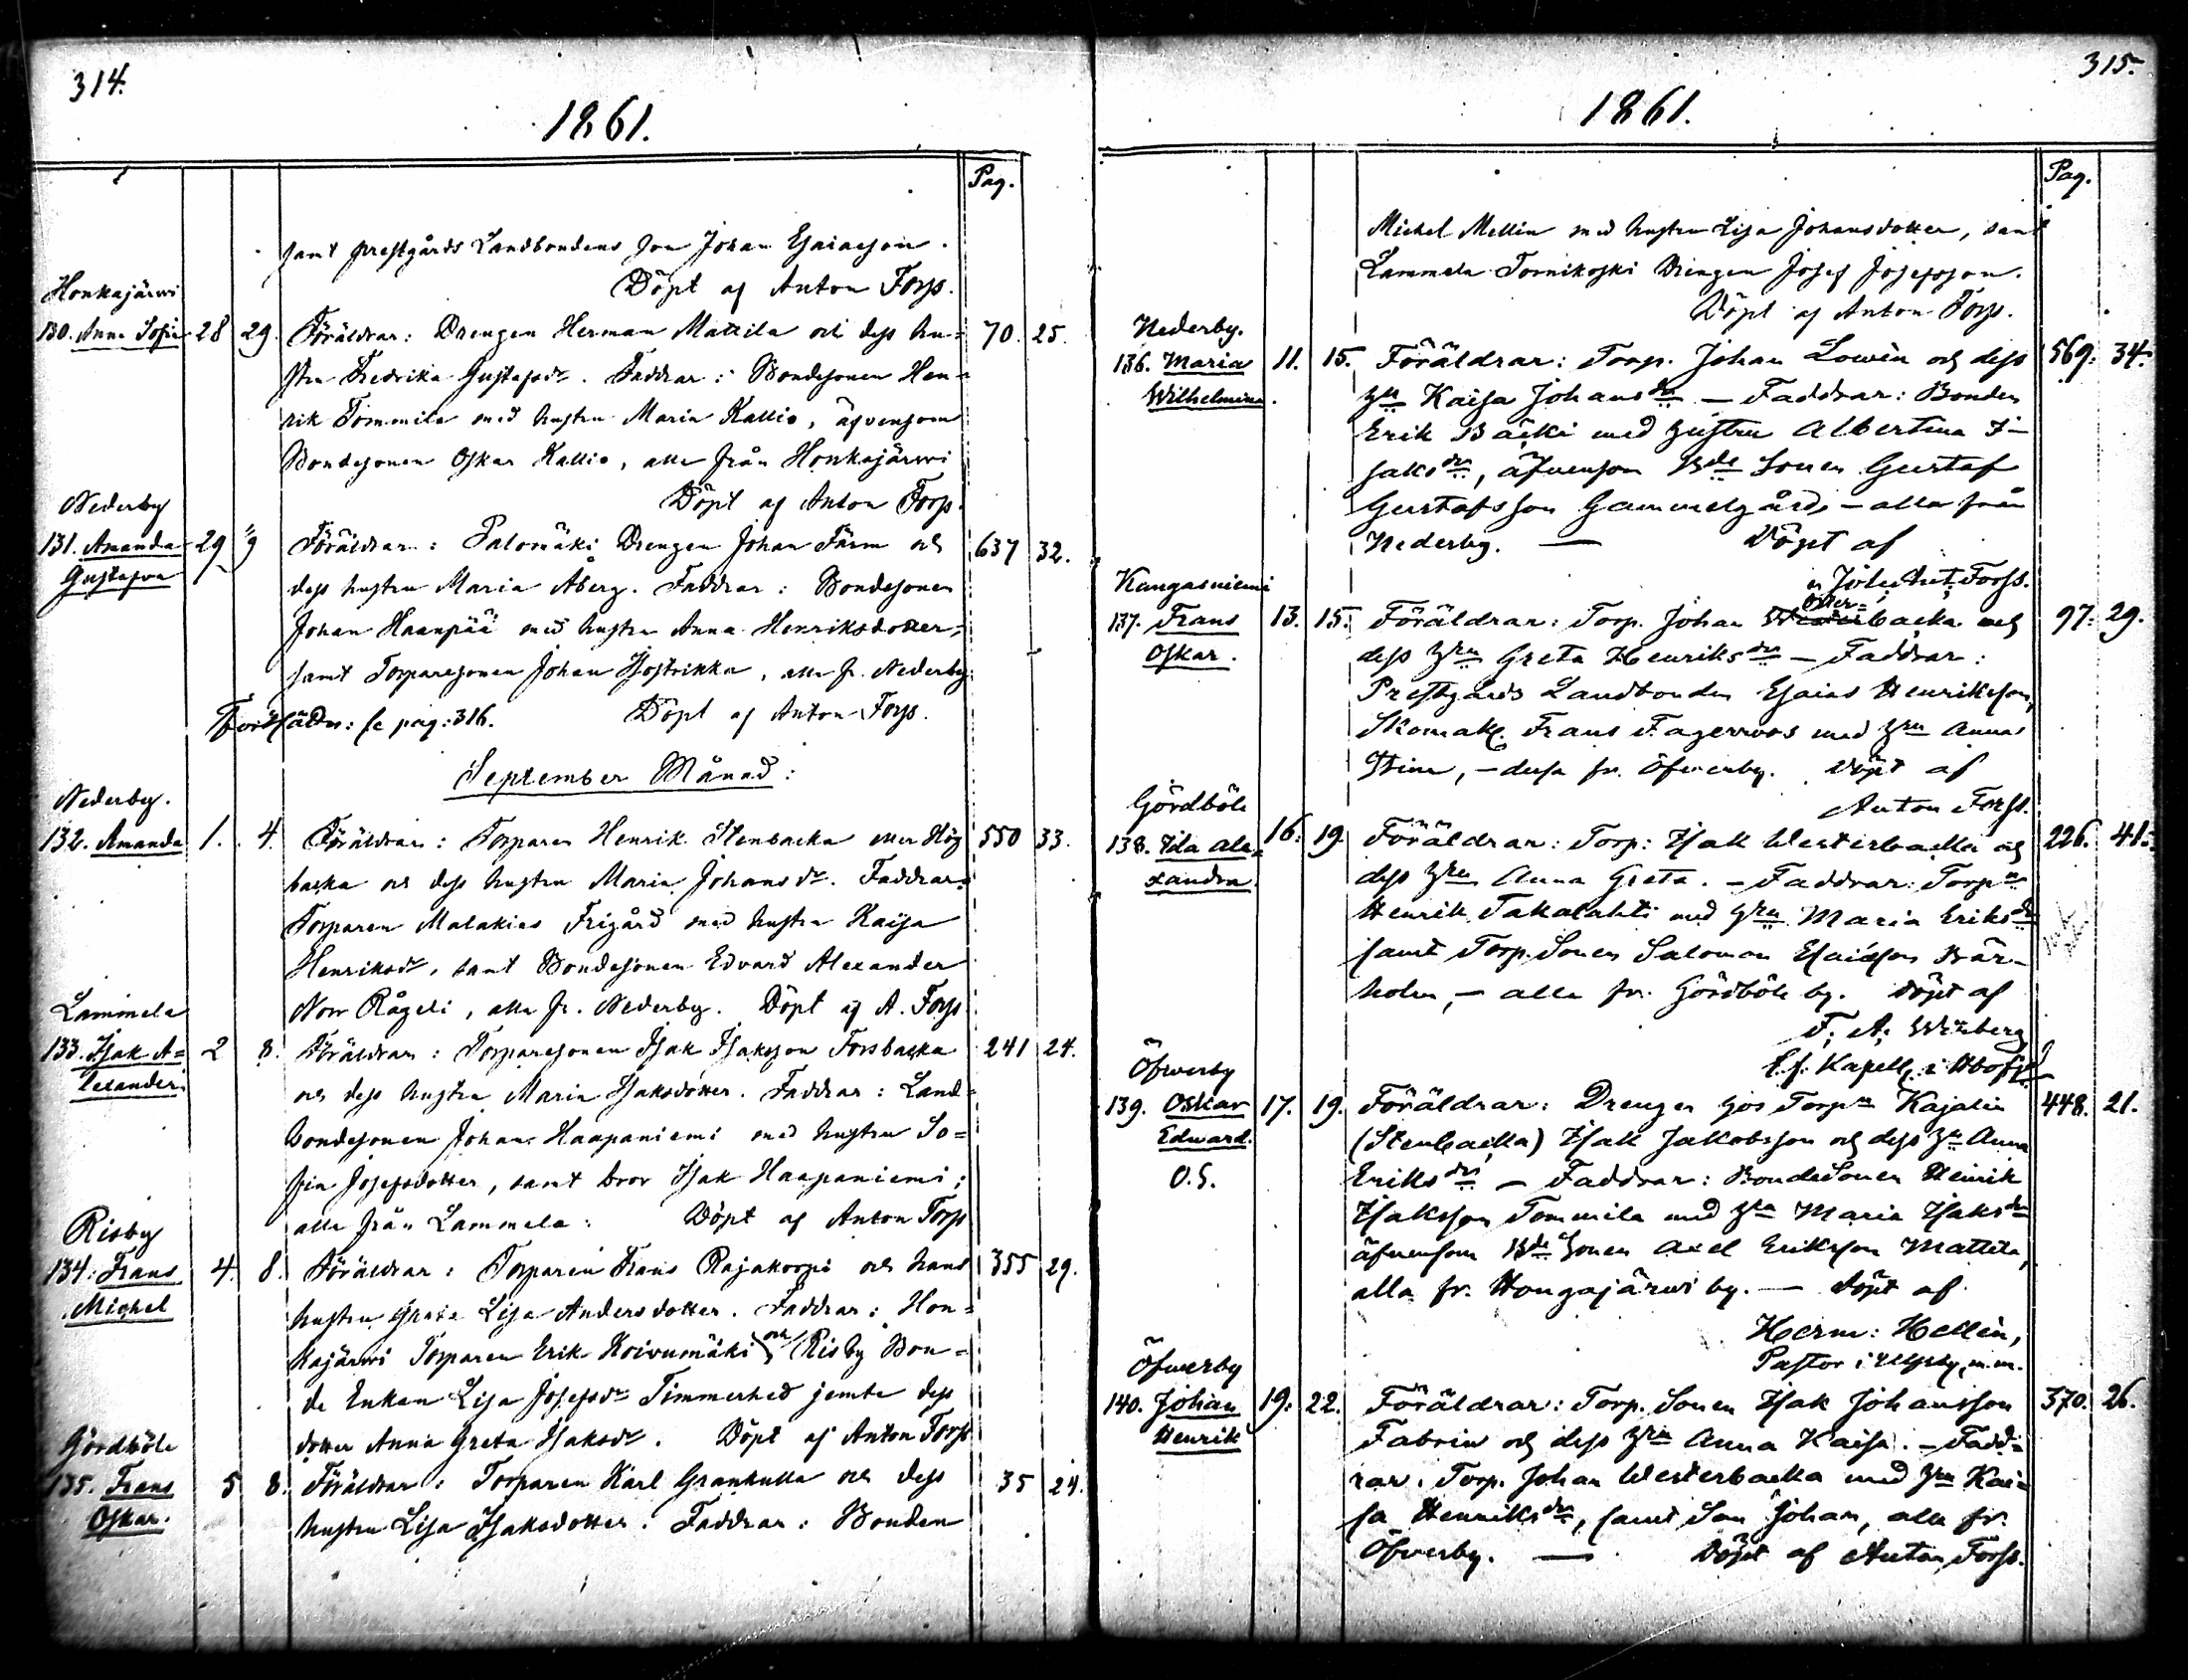 314.
1861.
Pag.
samt prestgårds Landbondens son Johan Esaiasson.
Döpt af Anton Forss.
Honkajärwi
130. Anna Sofia 28 29. Föräldrar: Drengen Herman Mattila och dess hu= 70. 25.
stru Fredrika Gustafsdr. Faddrar: Bondesonen Hen=
rik Tommila med hustru Maria Kallio, äfvensom
Bondesonen Oskar Kallio, alla från Honkajärwi
Döpt af Anton Forss.
Nederby
131. Amanda 29 9 Föräldrar: Palomäki Drengen Johan Färm och 637 32.
Gustafva
dess hustru Maria Åberg. Faddrar: Bondesonen
Johan Haanpää med hustru Anna Henriksdotter,
samt Torparesonen Johan, alla fr. Nederby.
se pag: 316. Döpt af Anton Forss.
September Månad:
Nederby.
132. Amanda 1. 4. Föräldrar: Torparen Henrik Stenbacka eller Hög 550 33.
backa och dess hustru Maria Johansdr. Faddrar:
Torparen Malakias Frigård med hustru Kaisa
Henriksdr, samt Bondesonen Edvard Alexander
Norr Rågeli, alla fr. Nederby. Döpt af A. Forss
Lammela
133. Isak A= 2 8. Föräldrar: Torparesonen Isak Isaksson Forsbacka 241 24.
lexander.
och dess hustru Maria Isaksdotter. Faddrar: Land=
bondesonen Johan Haapaniemi med hustru So=
fia Josefsdotter, samt bror Isak Haapaniemi;
alla från Lammela: Döpt af Anton Forss
Risby
134. Frans 4. 8. Föräldrar: Torparen Frans Rajakorpi och hans 355 29.
Michel
hustru Greta Lisa Andersdotter. Faddrar: Hon=
kajärwi Torparen Erik Koivumäki och Risby Bon=
de Enkan Lisa Josefsdr Timmerhed jemte dess
dotter Anna Greta Isaksdr. Döpt af Anton Forss
Gördböle
135. Frans 5 8. Föräldrar: Torparen Karl Grankulla och dess 35 24.
Oskar.
hustru Lisa Isaksdotter. Faddrar: Bonden
315.
1861.
Pag.
Michel Mellin med hustru Lisa Johansdotter, samt
Lammela Tornikoski Drengen Josef Josefsson.
Döpt af Anton Forss.
Nederby.
136. Maria 11. 15. Föräldrar: Torp. Johan Lowén och dess 569. 34.
Wilhelmina.
Hu Kaisa Johansdr. — Faddrar: Bonden
Erik Bäcki med hustru Albertina I-
saksdr, äfvensom Bde Sonen Gustaf
Gustafsson Gammelgård, — alla från
Nederby. — Döpt af
Ant. Forss.
Kangasniemi
137. Frans 13. 15. Föräldrar: Torp. Johan Öster=backa och 97. 29.
Oskar.
dess Hru Greta Henriksdr — Faddrar:
Prestgårds Landbonden Esaias Henriksson,
Skomak. Frans Fagerroos med Hru Anna
Stina, — dessa fr. Öfverby. Döpt af
Anton Forss.
Gördböle
138. Ida Ale= 16. 19. Föräldrar: Torp: Isak Westerbacka och 226. 41.
xandra.
dess Hru Anna Greta. — Faddrar: Torpn
Henrik Takalahti med Hru Maria Eriksdr
samt Torp. Sonen Salomon Esaiasson Bär-
holm, — alla fr. Gördböle by. Döpt af
F. A.
Kapell.
Öfverby
139. Oskar 17. 19. Föräldrar: Drengen hos Torpn Kajalin 448. 21.
Edward.
O. S.
(Stenbacka) Isak Jakobsson och dess Hu Anna
Eriksdr — Faddrar: BondeSonen Henrik
Isaksson Tommila med Hru Maria Isaksdr
äfvensom Bde Sonen Axel Eriksson Mattila,
alla fr. Hongajärwi by. — Döpt af
Herm: Hellén,
Pastor i m.m.
Öfverby
140. Johan 19. 22. Föräldrar: Torp. Sonen Isak Johansson 370. 26.
Henrik
Fabrin och dess Hru Anna Kaisa. — Fadd=
rar. Torp. Johan Westerbacka med Hru Kai=
sa Henriksdr, samt Son Johan, alla fr.
Öfverby. — Döpt af Anton Forss.